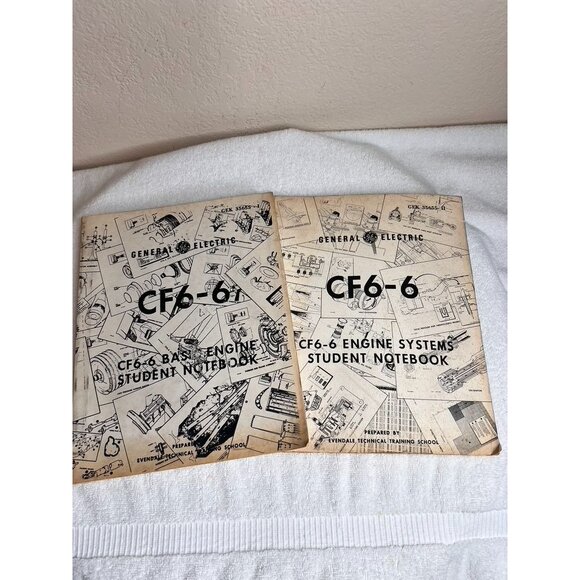 GEK 35655-I
GENERAL ELECTRIC
CF6-6
CF6-6 BASI ENGINE
STUDENT NOTEBOOK
PREPARED BY
EVENDALE TECHNICAL TRAINING SCHOOL
GEK 35655-II
GENERAL ELECTRIC
CF6-6
CF6-6 ENGINE SYSTEMS
STUDENT NOTEBOOK
PREPARED BY
EVENDALE TECHNICAL TRAINING SCHOOL